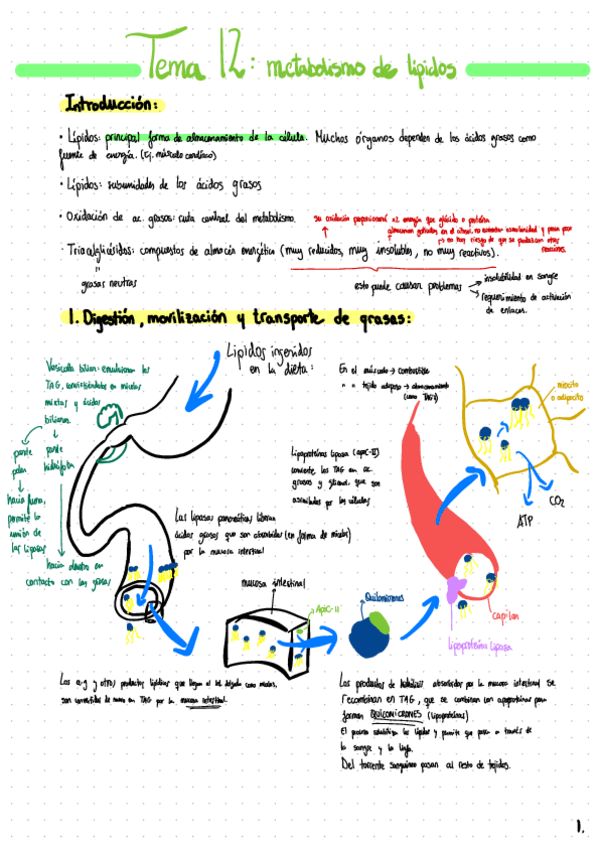 Tema 12: metabolismo de lípidos
Introducción:
• Lípidos: principal forma de almacenamiento de la célula. Muchos órganos dependen de los ácidos grasos como
fuente de energía. (Ej. músculo cardíaco)
• Lípidos: subunidades de los ácidos grasos
• Oxidación de ac. grasos: ruta central del metabolismo.
su oxidación proporciona más energía que glúcido o proteína
almacenan gotículas en el citosol, no aumentan osmolaridad y pesan poco
↳ no hay riesgo de que se produzcan otras
reacciones.
• Triacilglicéridos: compuestos de almacén energético (muy reducidos, muy insolubles, no muy reactivos).
"
grasas neutras
esto puede causar problemas
insolubilidad en sangre
requerimiento de activación
de enlaces.
1. Digestión, movilización y transporte de grasas:
Lípidos ingeridos
en la dieta:
Vesícula biliar: emulsionan los
TAG, convirtiéndolos en micelas
mixtas y ácidos
biliares.
parte
polar
parte
hidrófoba
hacia fuera,
permite la
unión de
las lipasas
hacia dentro en
contacto con las grasas
En el músculo → combustible
" " tejido adiposo → almacenamiento
(como TAG's)
miocito
o adipocito
Lipoproteína lipasa (apoC-II)
convierte los TAG en ac.
grasos y glicerol que son
asimilados por las células
CO2
ATP
Las lipasas pancreáticas liberan
ácidos grasos que son absorbidos (en forma de micelas)
por la mucosa intestinal
mucosa intestinal
ApoC-II
Quilomicrones
capilar
lipoproteína lipasa
Los a.g y otros productos lipídicos que llegan al int. delgado como micelas,
son convertidos de nuevo en TAG por la mucosa intestinal.
Los productos de hidrólisis absorbidos por la mucosa intestinal se
recombinan en TAG, que se combinan con apoproteínas para
formar QUILOMICRONES (lipoproteínas)
El proceso solubiliza los lípidos y permite que pasen a través de
la sangre y la linfa.
Del torrente sanguíneo pasan al resto de tejidos.
1.